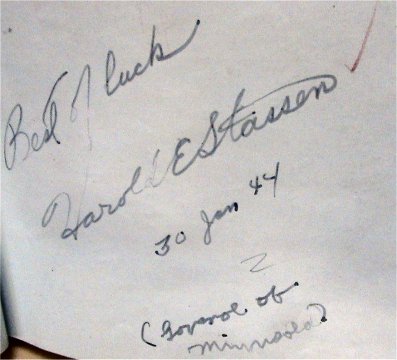 Best of luck
Harold E Stassen
30 Jan 44
(Governor of
Minnesota)